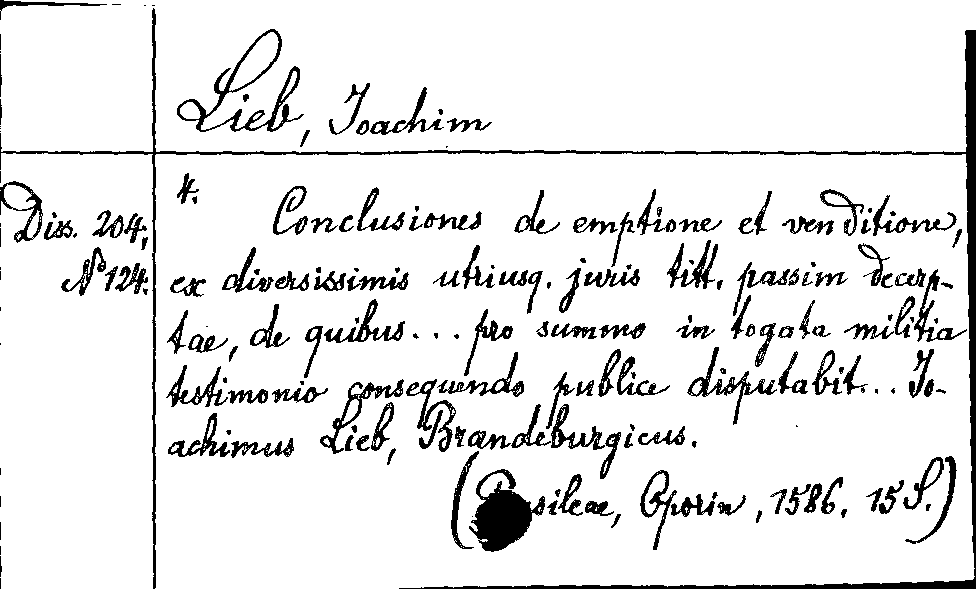 Lieb, Joachim
Diss. 204,
N° 124.
4.
Conclusiones de emptione et venditione,
ex diversissimis utriusq. juris titt. passim decerp-
tae, de quibus... pro summo in togata militia
testimonio consequendo publice disputabit... Jo-
achimus Lieb, Brandeburgicus.
(Basileae, Oporin, 1586. 15 S.)